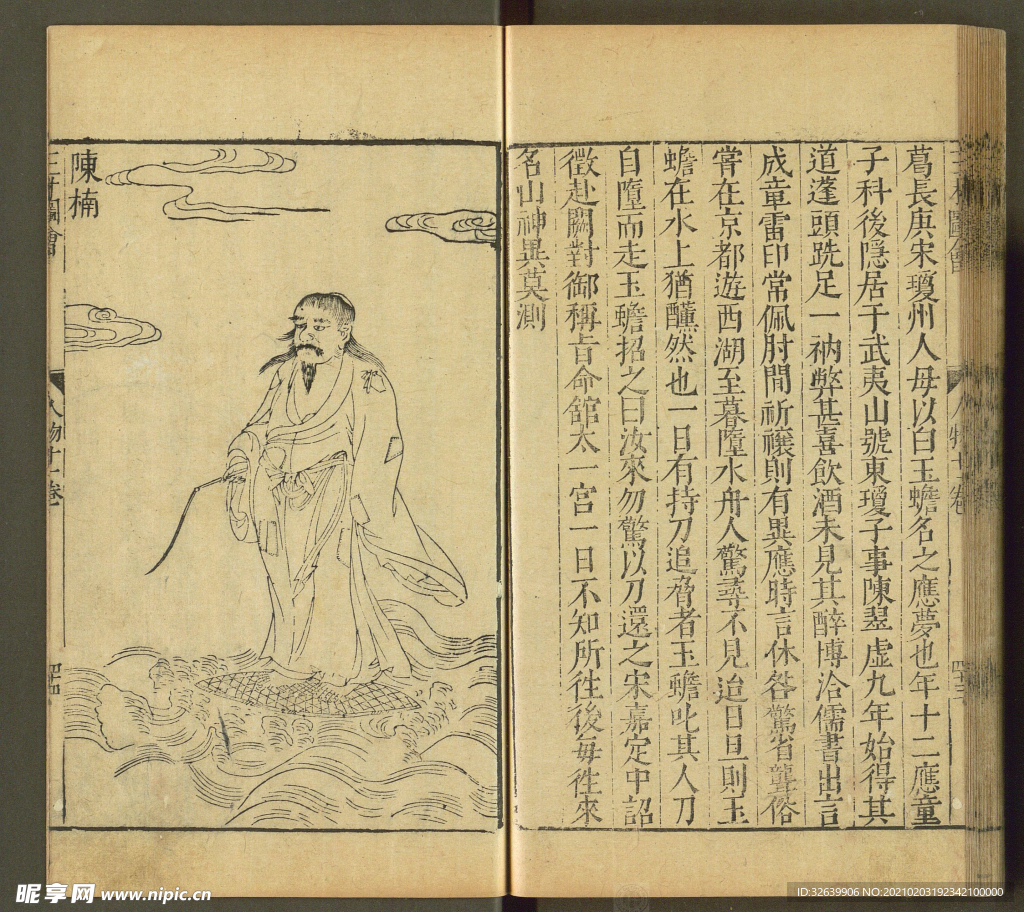 三才圖會
人物十一卷
四十三
葛長庚宋瓊州人母以白玉蟾名之應夢也年十二應童
子科後隱居于武夷山號東瓊子事陳翠虛九年始得其
道蓬頭跣足一衲弊甚喜飲酒未見其醉博洽儒書出言
成章雷印常佩肘間祈禳則有異應時言休咎驚省聾俗
甞在京都遊西湖至暮墮水舟人驚尋不見迨日旦則玉
蟾在水上猶醺然也一日有持刀追脅者玉蟾叱其人刀
自墮而走玉蟾招之曰汝來勿驚以刀還之宋嘉定中詔
徵赴闕對御稱旨命館太一宮一日不知所往後毎徃來
名山神異莫測
陳楠
三才圖會
人物十一卷
四十四
昵享网 www.nipic.cn
ID:32639906 NO:20210203192342100000